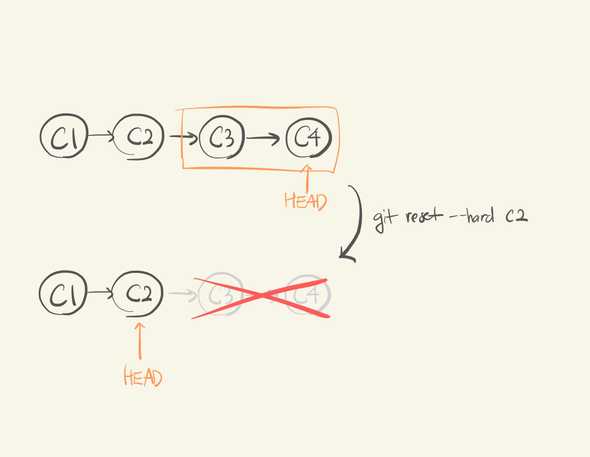 C1 C2 C3 C4
HEAD
git reset --hard C2
C1 C2 C3 C4
HEAD